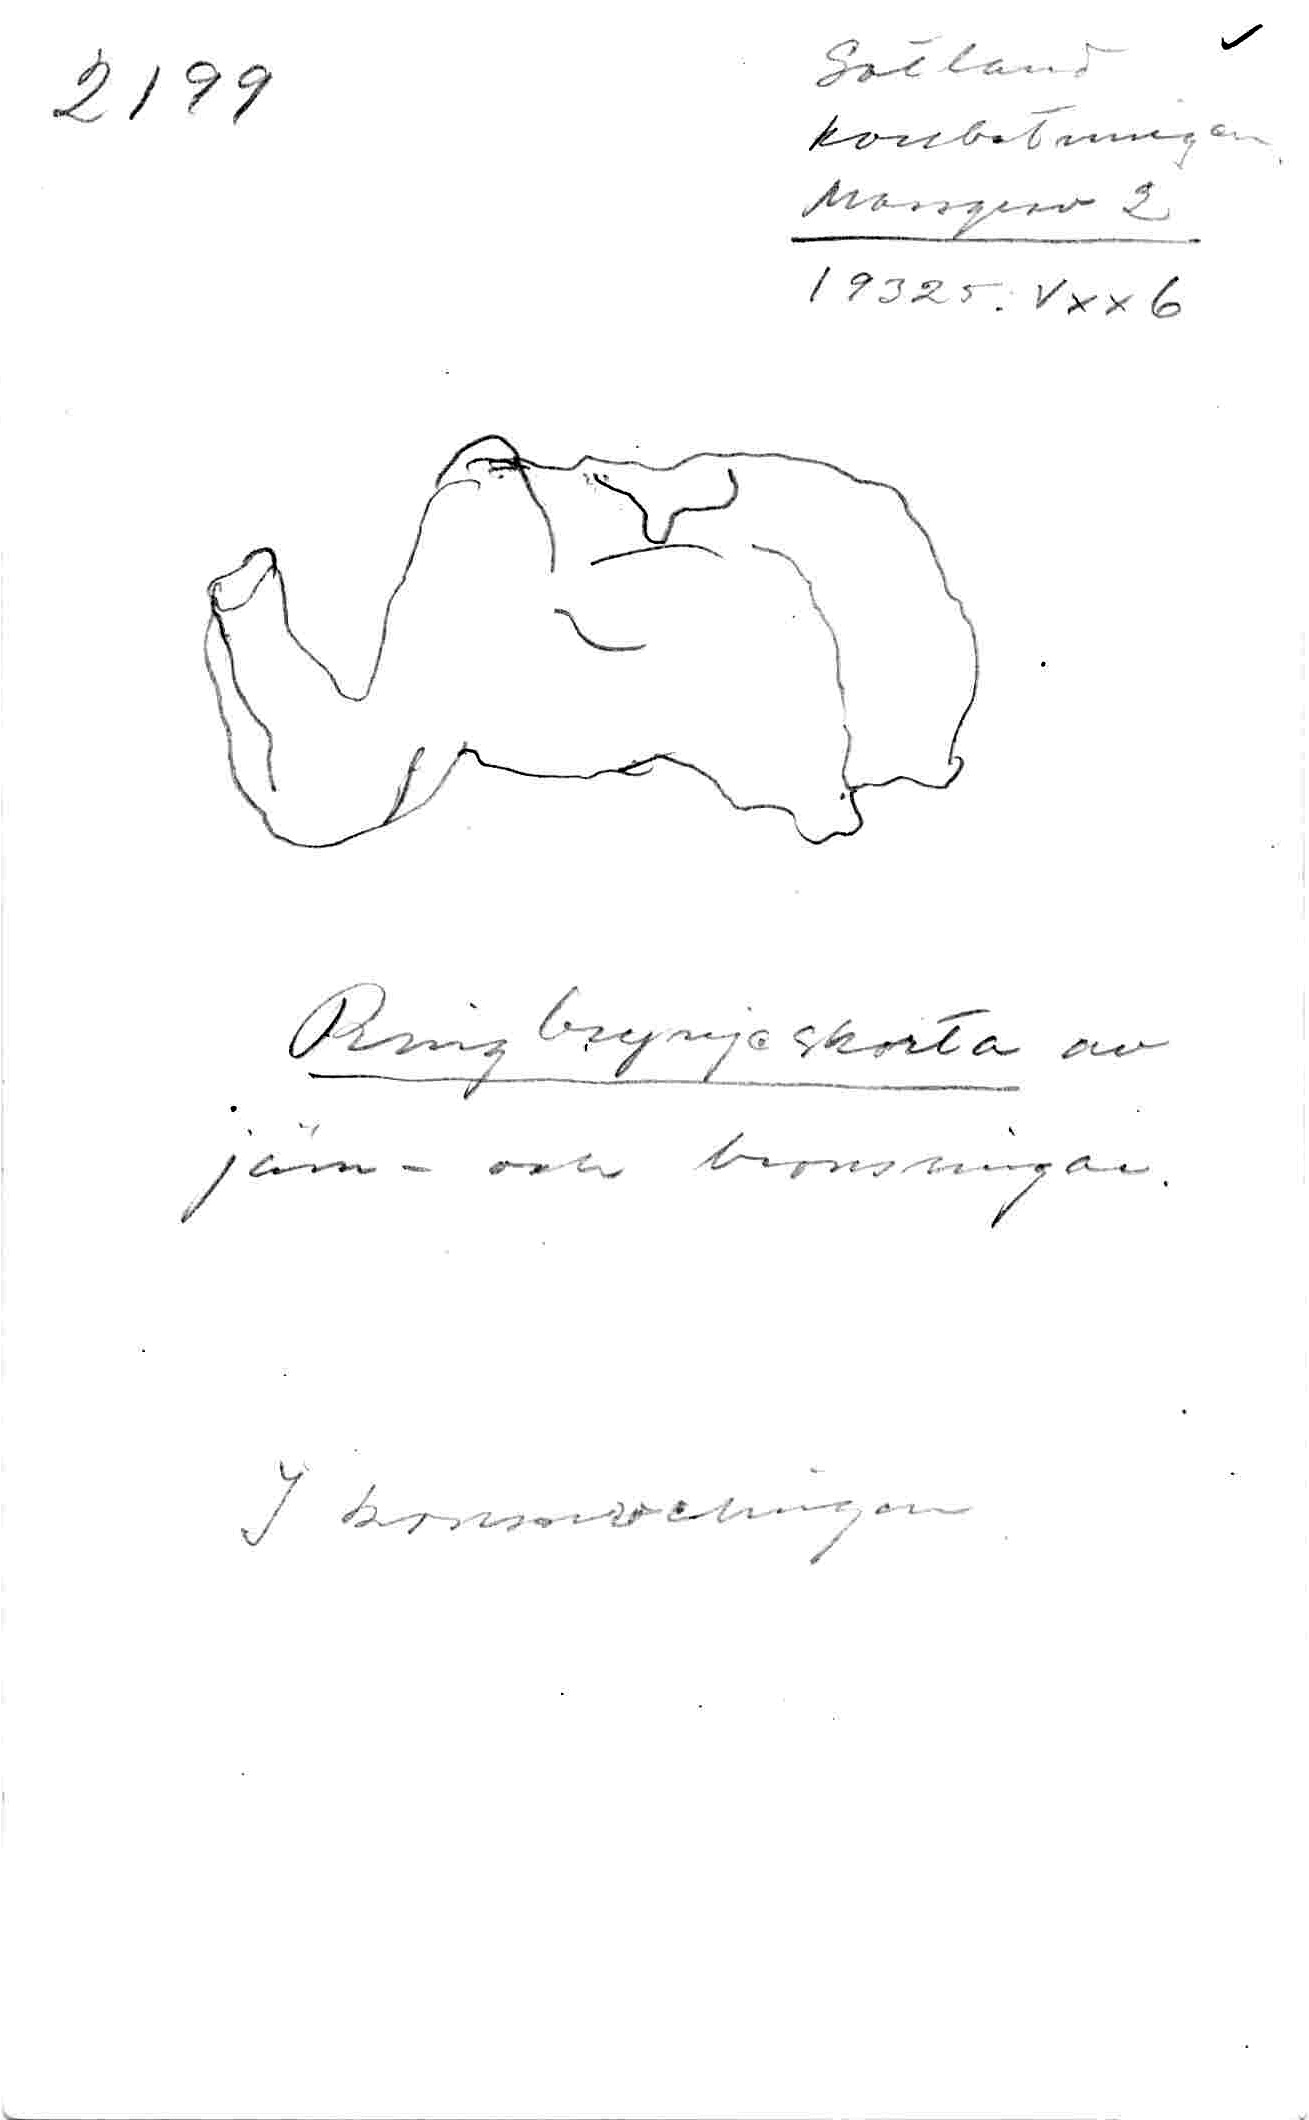 2199
Gotland
Korsbetningen
Massgrav 2
19325:Vxx6
Ringbrynjeskorta av
järn- och bronsringar.
I konserveringen